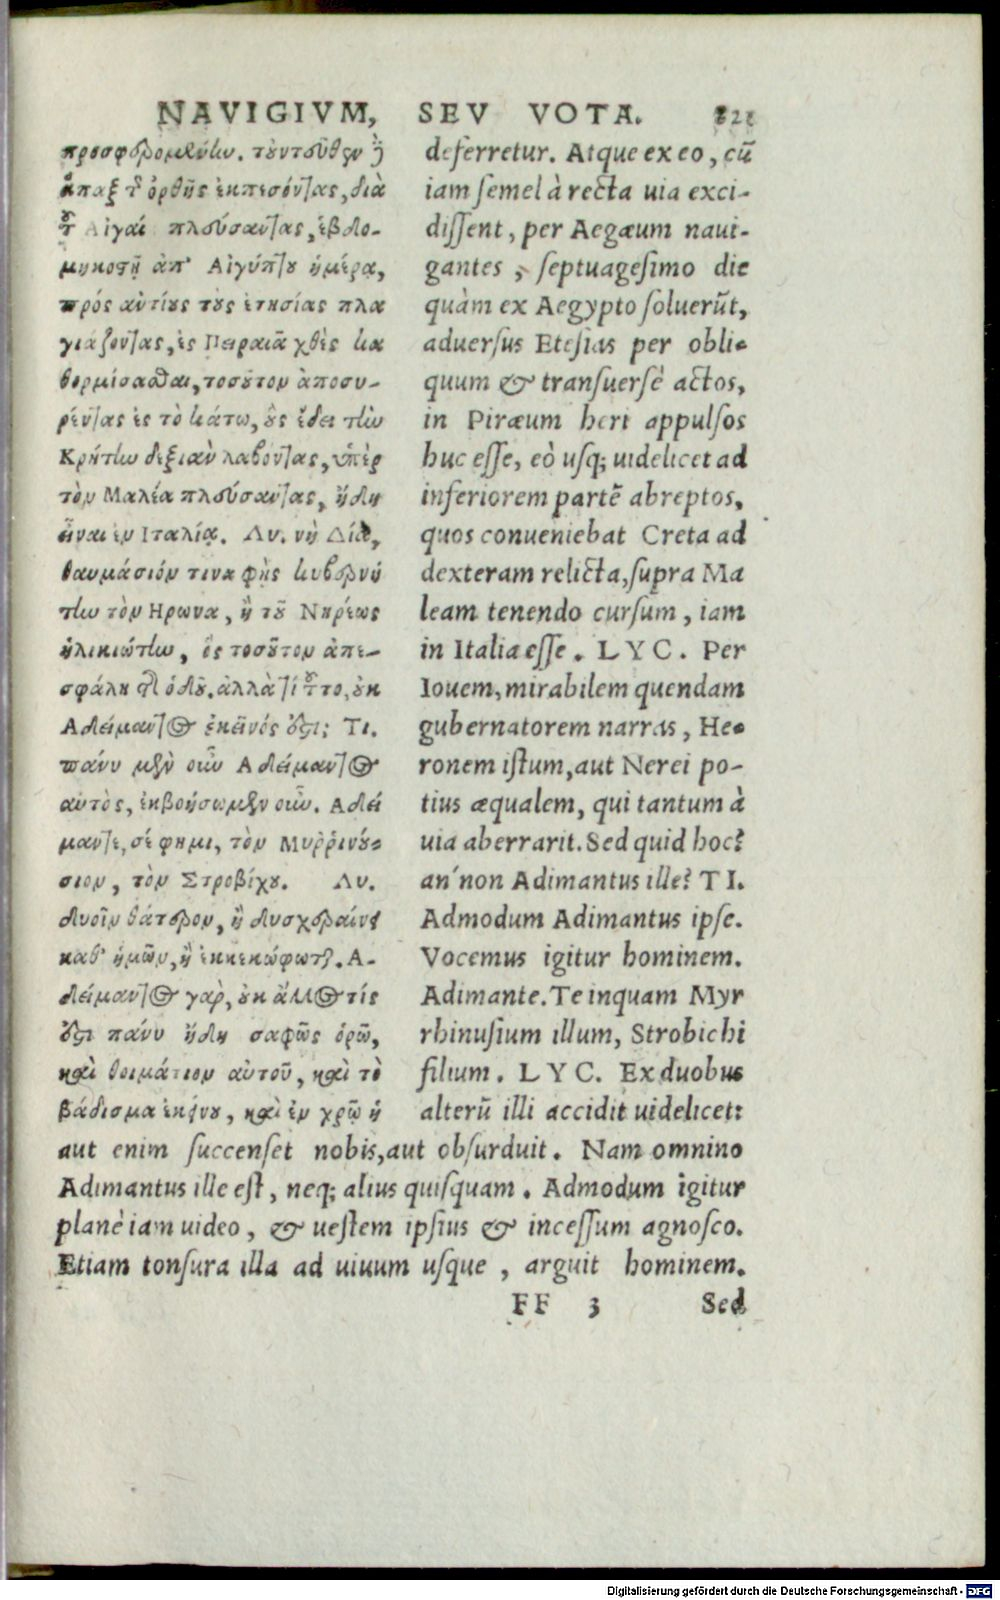 NAVIGIVM, SEV VOTA. 821
προσφερομένην. τοὐντεῦθεν δὲ
ἅπαξ τ̃ ὀρθῆς ἐκπεσόντας, διὰ
τ̃ Αἰγαί πλεύσαντας, ἑβδο-
μηκοστῇ ἀπ' Αἰγύπτου ἡμέρᾳ,
πρὸς αὐτίους τοὺς ἐτησίας πλα
γιάζοντας, ἐς Πειραιᾶ χθὲς κα
θορμίσασθαι, τοσοῦτον ἀποσυ-
ρέντας ἐς τὸ κάτω, οὓς ἔδει τὴν
Κρήτην δεξιὰν λαβόντας, ὑπὲρ
τὸν Μαλέα πλεύσαντας, ἤδη
εἶναι ἐν Ἰταλίᾳ. Λυ. νὴ Δία,
θαυμάσιόν τινα φῂς κυβερνή
την τὸν Ηρωνα, ἢ τοῦ Νηρέως
ἡλικιώτην, ὃς τοσοῦτον ἀπε-
σφάλη τῆ ὁδοῦ. ἀλλὰ τί τοῦτο, οὐκ
Αδείμαντος ἐκεῖνός ἐστι; Τι.
πάνυ μὲν οὖν Αδείμαντος
αὐτὸς, ἐκβοήσωμεν οὖν. Αδεί
μαντε, σέ φημι, τὸν Μυῤῥινού-
σιον, τὸν Στροβίχου. Λυ.
δυοῖν θάτερον, ἢ δυσχεραίνει
καθ' ἡμῶν, ἢ ἐκκεκώφωται. Α-
δείμαντος γὰρ, οὐκ ἄλλος τίς
ἐστι πάνυ ἤδη σαφῶς ὁρῶ,
καὶ θοιμάτιον αὐτοῦ, καὶ τὸ
βάδισμα ἐκείνου, καὶ ἐν χρῷ ἡ
deferretur. Atque ex eo, cũ
iam semel à recta uia exci-
dissent, per Aegæum naui-
gantes, septuagesimo die
quàm ex Aegypto soluerũt,
aduersus Etesias per obli-
quum & transuersè actos,
in Piræum heri appulsos
huc esse, eò usq; uidelicet ad
inferiorem partẽ abreptos,
quos conueniebat Creta ad
dexteram relicta, supra Ma
leam tenendo cursum, iam
in Italia esse. LYC. Per
Iouem, mirabilem quendam
gubernatorem narras, He-
ronem istum, aut Nerei po-
tius æqualem, qui tantum à
uia aberrarit. Sed quid hoc?
an' non Adimantus ille? TI.
Admodum Adimantus ipse.
Vocemus igitur hominem.
Adimante. Te inquam Myr
rhinusium illum, Strobichi
filium. LYC. Ex duobus
alterũ illi accidit uidelicet:
aut enim succenset nobis, aut obsurduit. Nam omnino
Adimantus ille est, neq; alius quisquam. Admodum igitur
planè iam uideo, & uestem ipsius & incessum agnosco.
Etiam tonsura illa ad uiuum usque, arguit hominem.
FF 3 Sed
Digitalisierung gefördert durch die Deutsche Forschungsgemeinschaft - DFG